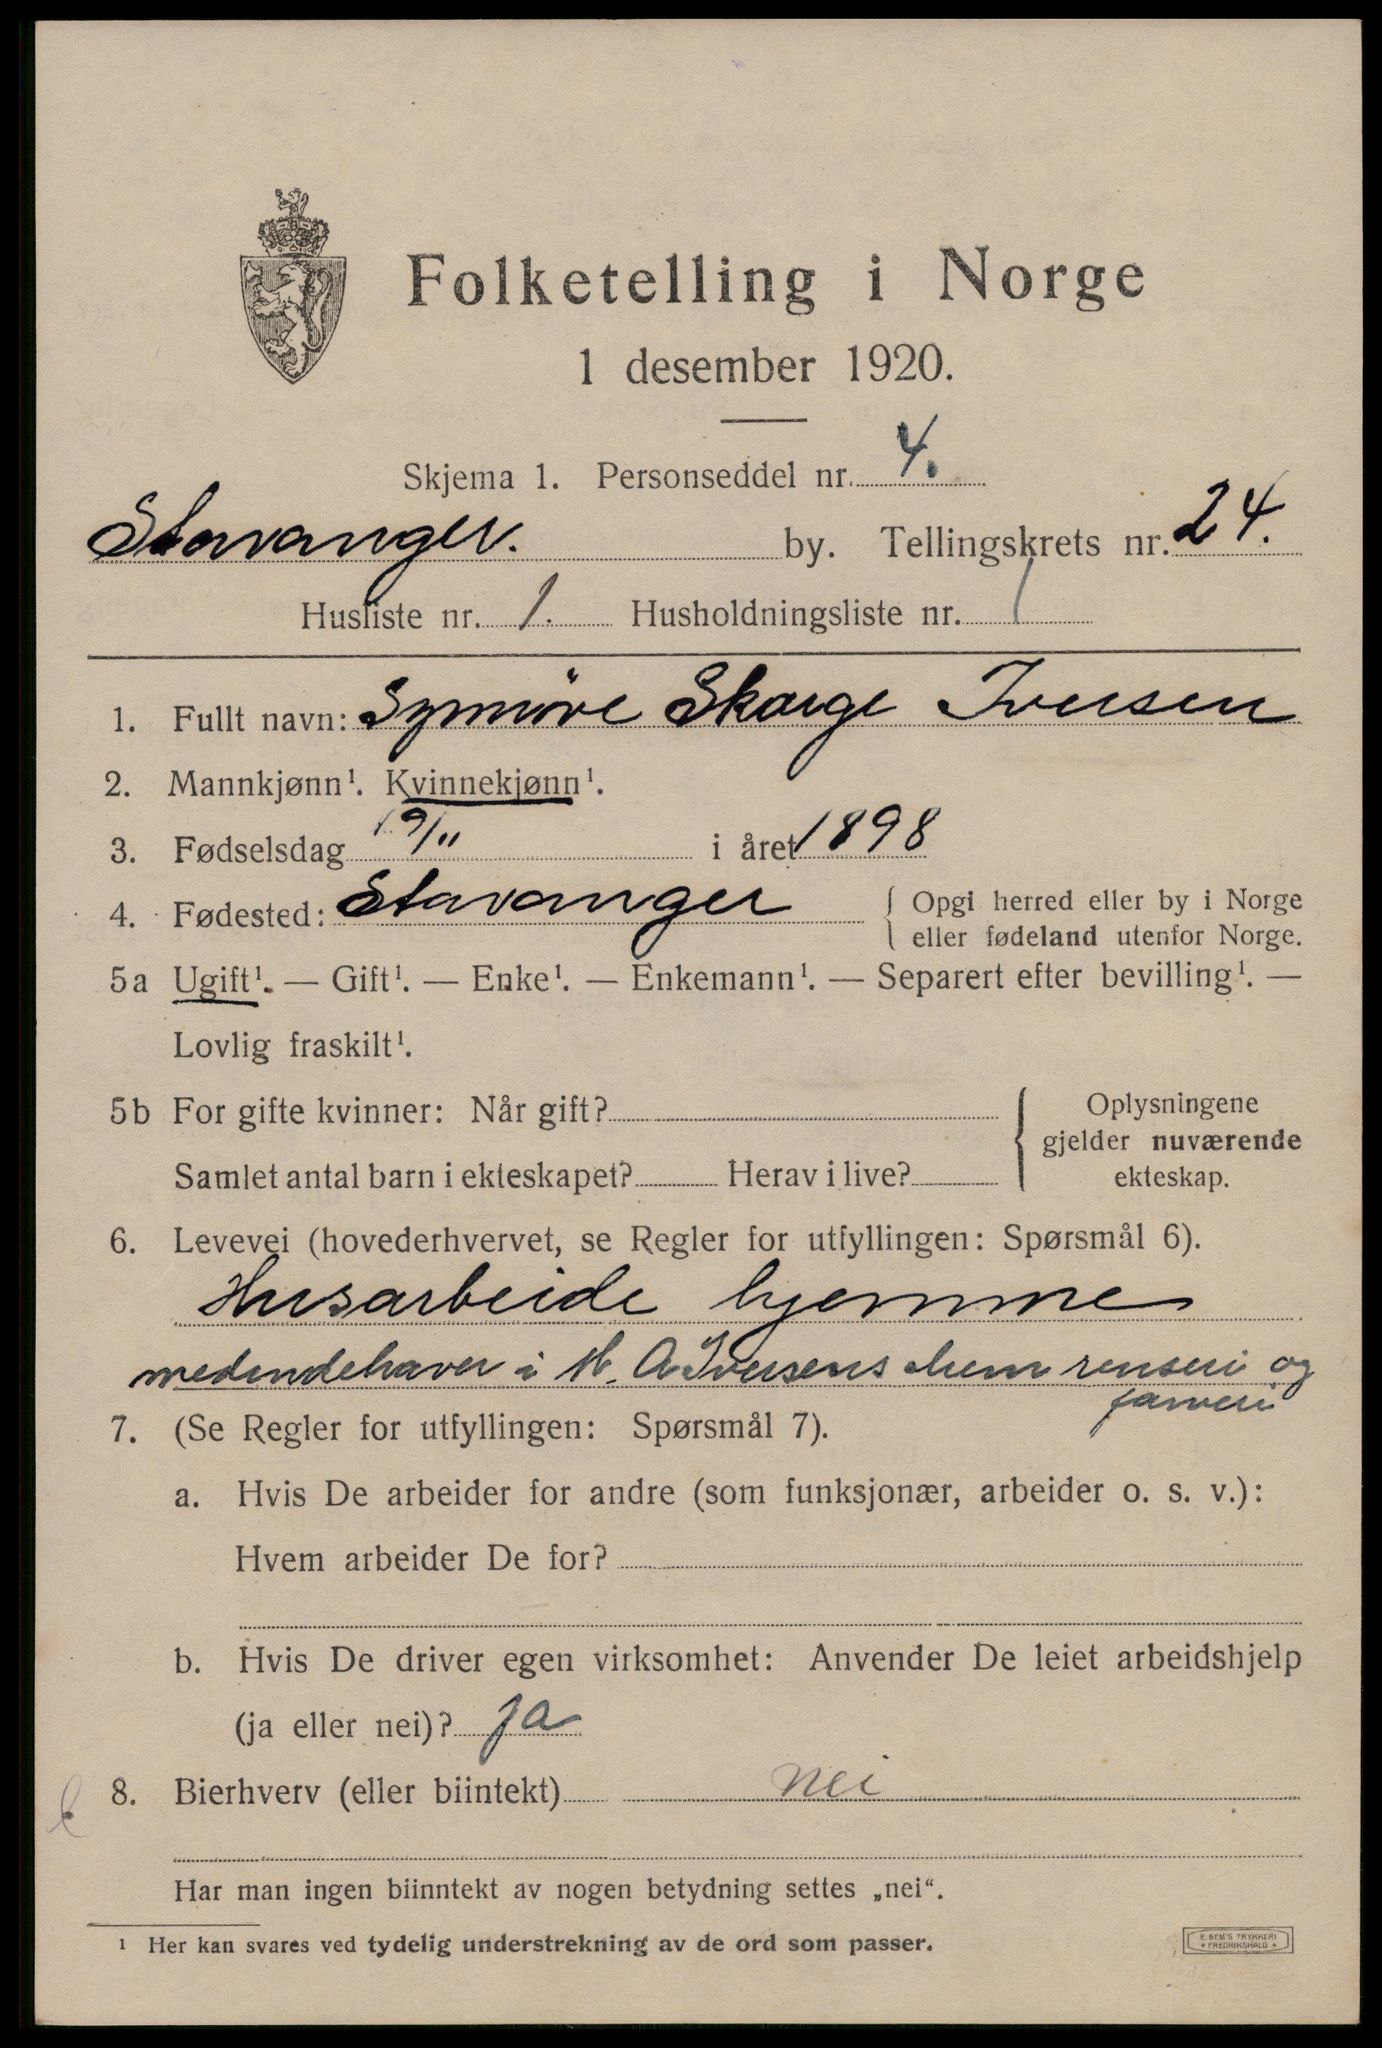 Folketelling i Norge
1 desember 1920.
Skjema 1. Personseddel nr. 4.
Stavanger. by. Tellingskrets nr. 24.
Husliste nr. 1. Husholdningsliste nr. 1
1. Fullt navn: Synnöve Skarge Iversen
2. Mannkjønn¹. Kvinnekjønn¹.
3. Fødselsdag 19/11 i året 1898
4. Fødested: Stavanger { Opgi herred eller by i Norge
eller fødeland utenfor Norge.
5a Ugift¹. — Gift¹. — Enke¹. — Enkemann¹. — Separert efter bevilling¹. —
Lovlig fraskilt¹.
5b For gifte kvinner: Når gift? { Oplysningene
gjelder nuværende
Samlet antal barn i ekteskapet? Herav i live? ekteskap.
6. Levevei (hovederhvervet, se Regler for utfyllingen: Spørsmål 6).
Husarbeide hjemme
medindehaver i M. A Iversens chem renseri og
farveri
7. (Se Regler for utfyllingen: Spørsmål 7).
a. Hvis De arbeider for andre (som funksjonær, arbeider o. s. v.):
Hvem arbeider De for?
b. Hvis De driver egen virksomhet: Anvender De leiet arbeidshjelp
(ja eller nei)? ja
8. Bierhverv (eller biintekt) nei
Har man ingen biinntekt av nogen betydning settes „nei“.
¹ Her kan svares ved tydelig understrekning av de ord som passer.
E. SEM'S TRYKKERI
* FREDRIKSHALD *